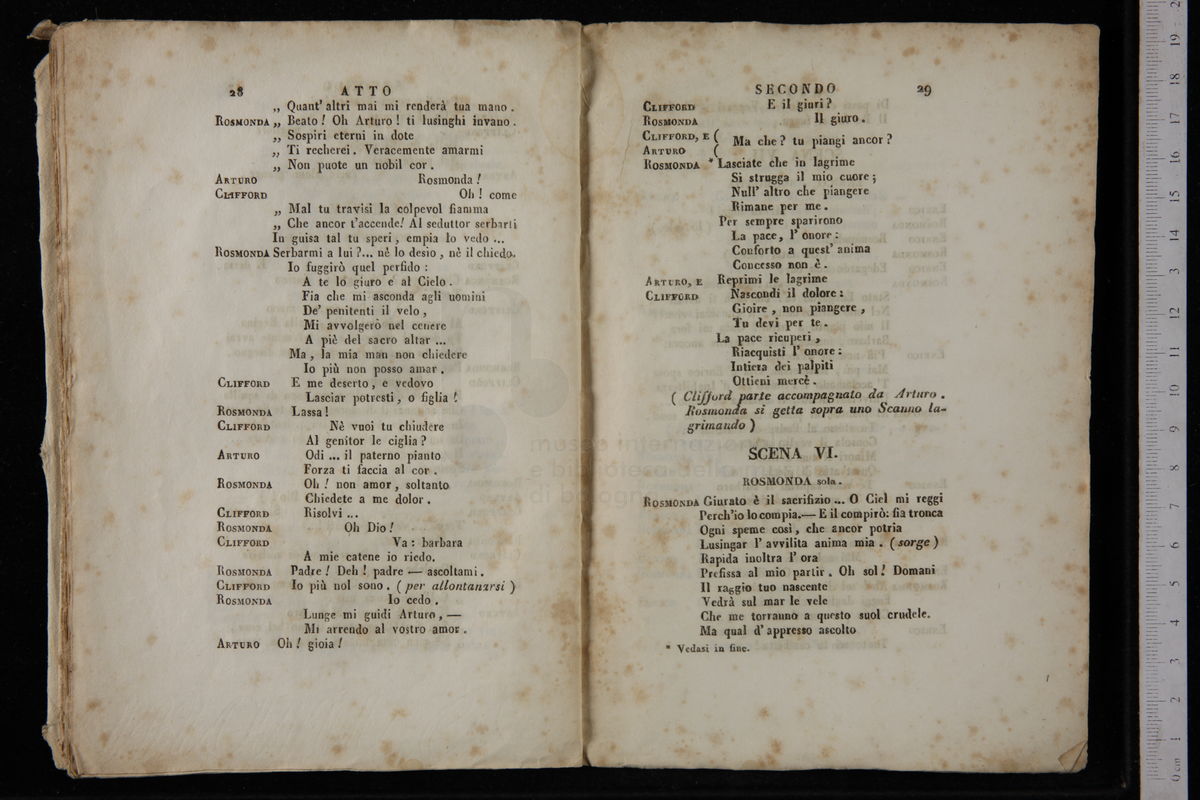 28 ATTO
„ Quant' altri mai mi renderà tua mano .
ROSMONDA „ Beato ! Oh Arturo ! ti lusinghi invano .
„ Sospiri eterni in dote
„ Ti recherei . Veracemente amarmi
„ Non puote un nobil cor .
ARTURO Rosmonda !
CLIFFORD Oh ! come
„ Mal tu travisi la colpevol fiamma
„ Che ancor t'accende! Al seduttor serbarti
In guisa tal tu speri , empia lo vedo ...
ROSMONDA Serbarmi a lui ?... nè lo desio , nè il chiedo.
Io fuggirò quel perfido :
A te lo giuro e al Cielo .
Fia che mi asconda agli uomini
De' penitenti il velo ,
Mi avvolgerò nel cenere
A piè del sacro altar ...
Ma , la mia man non chiedere
Io più non posso amar .
CLIFFORD E me deserto , e vedovo
Lasciar potresti , o figlia !
ROSMONDA Lassa !
CLIFFORD Nè vuoi tu chiudere
Al genitor le ciglia ?
ARTURO Odi ... il paterno pianto
Forza ti faccia al cor .
ROSMONDA Oh ! non amor , soltanto
Chiedete a me dolor .
CLIFFORD Risolvi ...
ROSMONDA Oh Dio !
CLIFFORD Va : barbara
A mie catene io riedo.
ROSMONDA Padre ! Deh ! padre — ascoltami .
CLIFFORD Io più nol sono . ( per allontanarsi )
ROSMONDA Io cedo .
Lunge mi guidi Arturo , —
Mi arrendo al vostro amor .
ARTURO Oh ! gioia !
SECONDO 29
CLIFFORD E il giuri ?
ROSMONDA Il giuro .
CLIFFORD, E (
ARTURO ( Ma che ? tu piangi ancor ?
ROSMONDA * Lasciate che in lagrime
Si strugga il mio cuore ;
Null' altro che piangere
Rimane per me .
Per sempre sparirono
La pace, l' onore :
Conforto a quest' anima
Concesso non è .
ARTURO, E Reprimi le lagrime
CLIFFORD Nascondi il dolore :
Gioire , non piangere ,
Tu devi per te .
La pace ricuperi ,
Riacquisti l' onore :
Intiera dei palpiti
Ottieni mercè .
( Clifford parte accompagnato da Arturo .
Rosmonda si getta sopra uno Scanno la-
grimando )
SCENA VI.
ROSMONDA sola .
ROSMONDA Giurato è il sacrifizio ... O Ciel mi reggi
Perch'io lo compia.— E il compirò: fia tronca
Ogni speme così , che ancor potria
Lusingar l' avvilita anima mia . ( sorge )
Rapida inoltra l' ora
Prefissa al mio partir . Oh sol ! Domani
Il raggio tuo nascente
Vedrà sul mar le vele
Che me torranno a questo suol crudele.
Ma qual d' appresso ascolto
* Vedasi in fine.